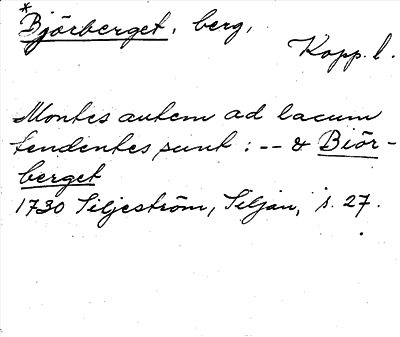 *
Björberget, berg,
Kopp. l.
Montes autem ad lacum
tendentes sunt : -- & Biör-
berget
1730 Siljeström, Siljan, s. 27.